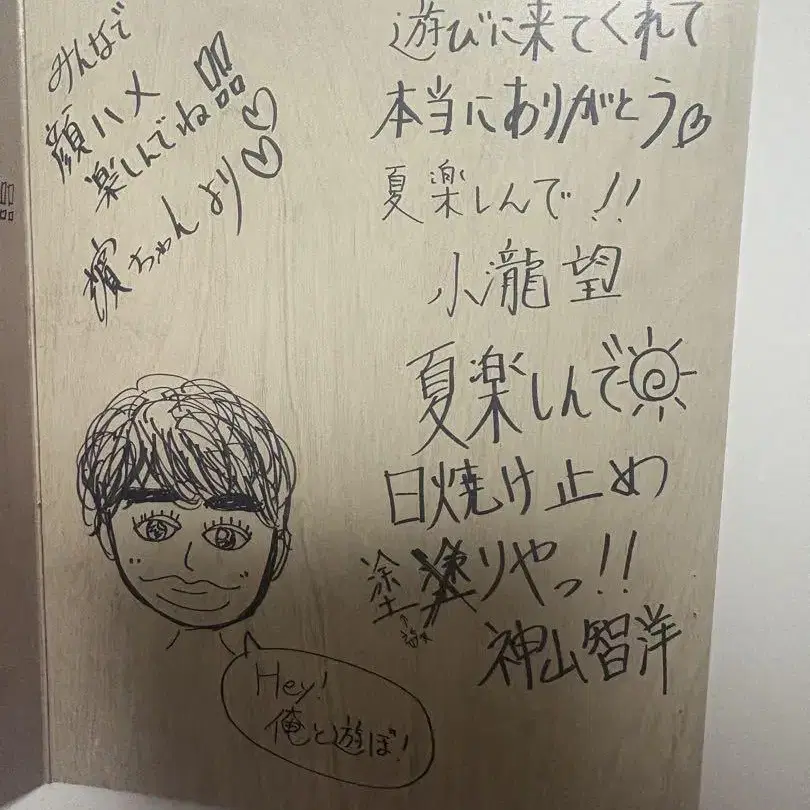 みんなで
顔ハメ
楽しんでね!!!
濱ちゃんより♡♡
遊びに来てくれて
本当にありがとう♡
夏楽しんで!!
小瀧望
夏楽しんで
日焼け止め
塗りやっ!!
神山智洋
Hey!
俺と遊ぼ!